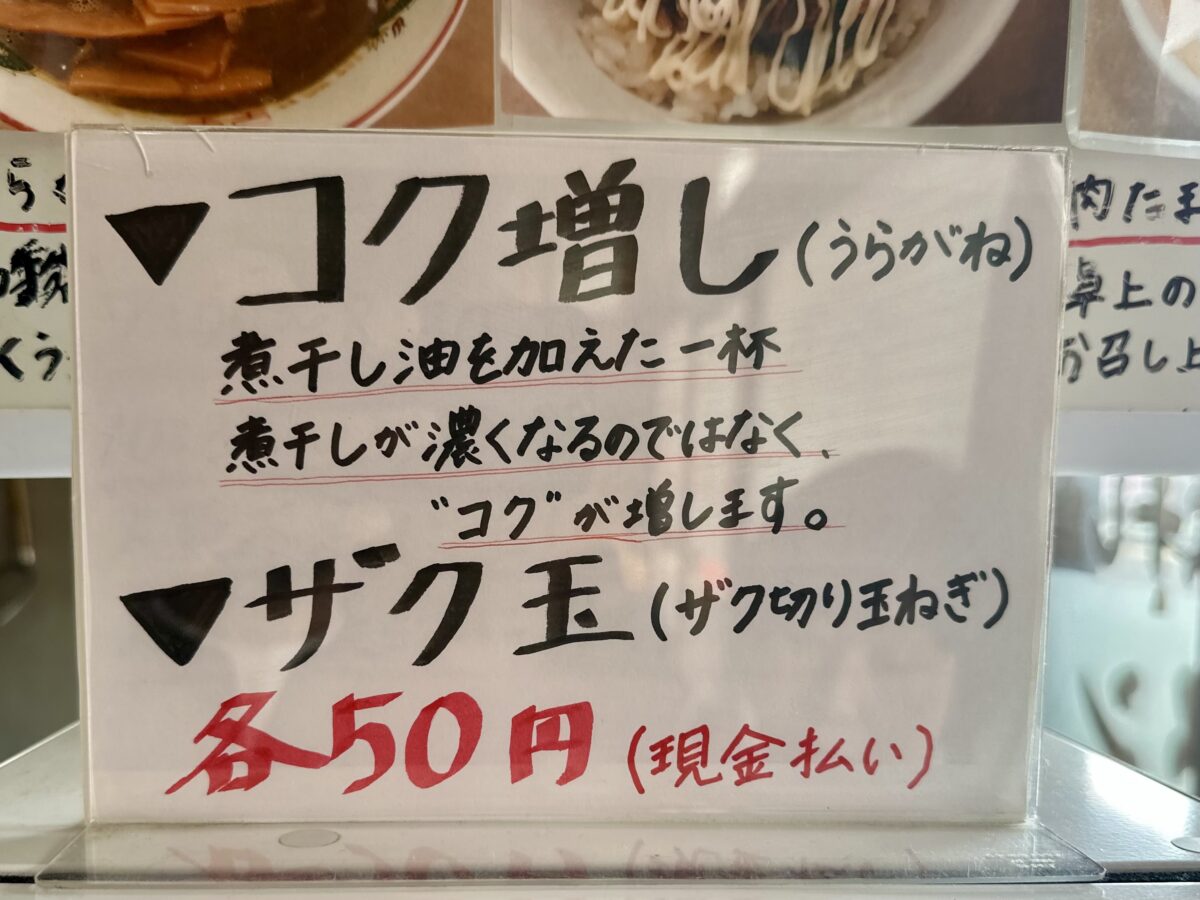 ▼コク増し(うらがね)
煮干し油を加えた一杯
煮干しが濃くなるのではなく、
"コク"が増します。
▼ザク玉(ザク切り玉ねぎ)
各50円(現金払い)
肉たま
卓上の
お召し上
らく
くう